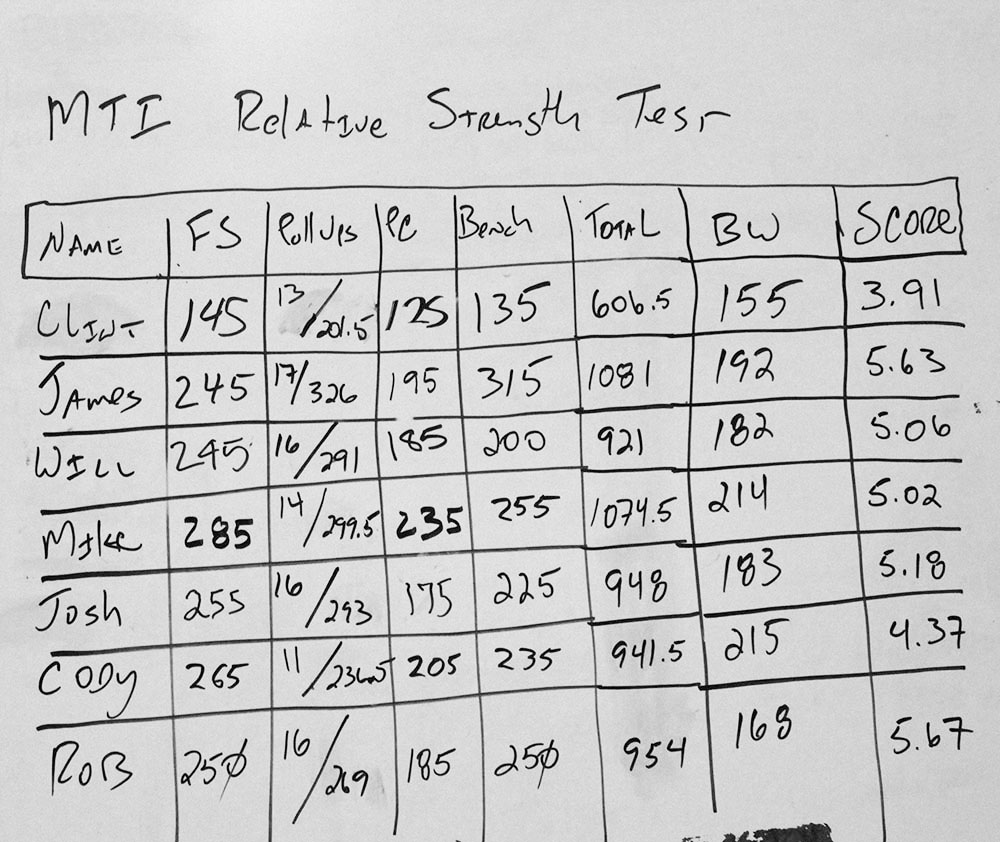 MTI Relative Strength Test
NAME FS Pull Ups PC Bench TOTAL BW SCORE
CLINT 145 13/201.5 125 135 606.5 155 3.91
JAMES 245 17/326 195 315 1081 192 5.63
WILL 245 16/291 185 200 921 182 5.06
MIKE 285 14/299.5 235 255 1074.5 214 5.02
Josh 255 16/293 175 225 948 183 5.18
CODY 265 11/236.5 205 235 941.5 215 4.37
ROB 250 16/269 185 250 954 168 5.67